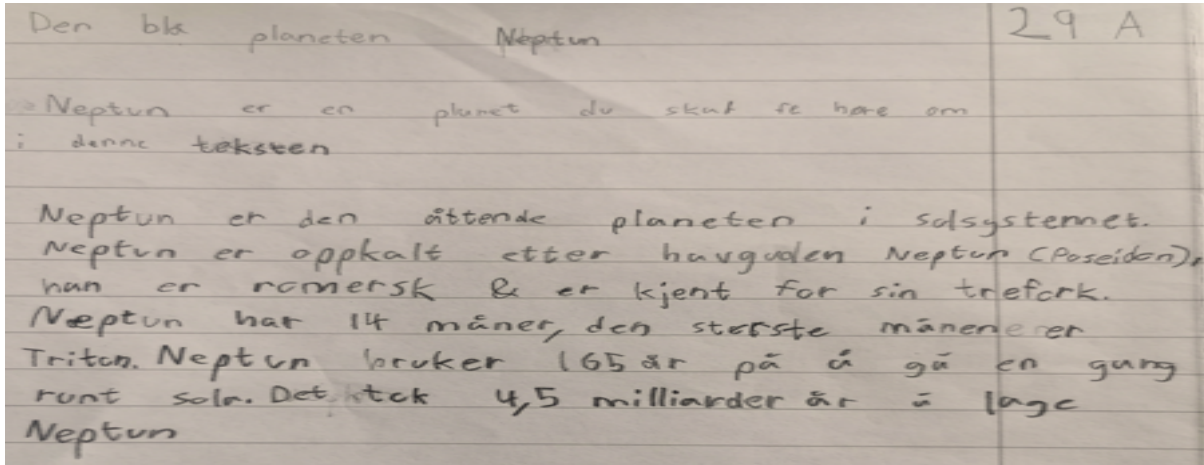 Den blå planeten Neptun 29 A
Neptun er en planet du skal se bare om
i denne teksten
Neptun er den åttende planeten i solsystemet.
Neptun er oppkalt etter havguden Neptun (Poseidon),
han er romersk & er kjent for sin trefork.
Neptun har 14 måner, den største månene er
Triton. Neptun bruker 165 år på å gå en gang
runt sola. Det tok 4,5 milliarder år å lage
Neptun